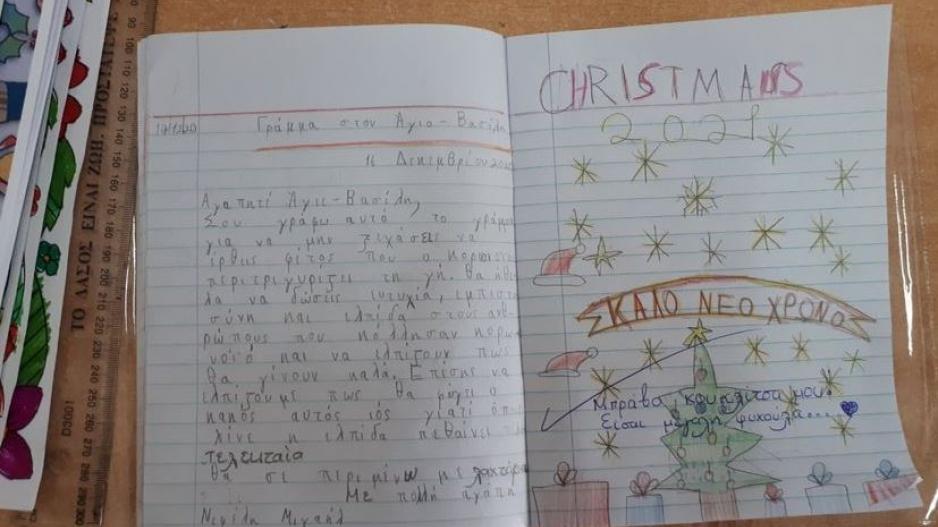 17/12/2020
Γράμμα στον Άγιο-Βασίλη
16 Δεκεμβρίου 2020
Αγαπητέ Άγιε-Βασίλη,
Σου γράφω αυτό το γράμμα
για να μην ξεχάσεις να
έρθεις φέτος που ο κορωνο
περιτριγυρίζει τη γη. Θα ήθε
λα να δώσεις ευτυχία, εμπιστο
σύνη και ελπίδα στους ανθ
ρώπους που κόλλησαν κορω
νοϊό και να ελπίζουν πως
θα γίνουν καλά. Επίσης να
ελπίζουμε πως θα φύγει ο
κακός αυτός ιός γιατί όπως
λένε η ελπίδα πεθαίνει
τελευταία
Θα σε περιμένω με λαχτάρα
Με πολλή αγάπη
Νεφέλη Μιχαήλ
CHRISTMAS
2021
ΚΑΛΟ ΝΕΟ ΧΡΟΝΟ
Μπράβο κουκλίτσα μου!
Είσαι μεγάλη ψυχούλα...
ΤΟ ΔΑΣΟΣ ΕΙΝΑΙ ΖΩΗ. ΠΡΟΣΤΑΤΕΥ
90 100 110 120 130 140 150 160 170 180 190 200 210 220 230 240 250 260 270 280 290